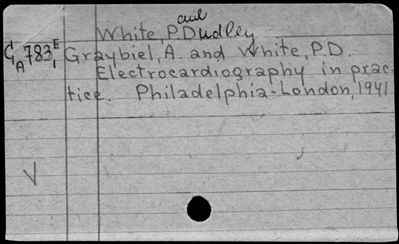 White, P.Dudley
aul
GA783,E1 Graybiel, A. and White, P.D.
Electrocardiography in prac-
tice. Philadelphia-London, 1941
V